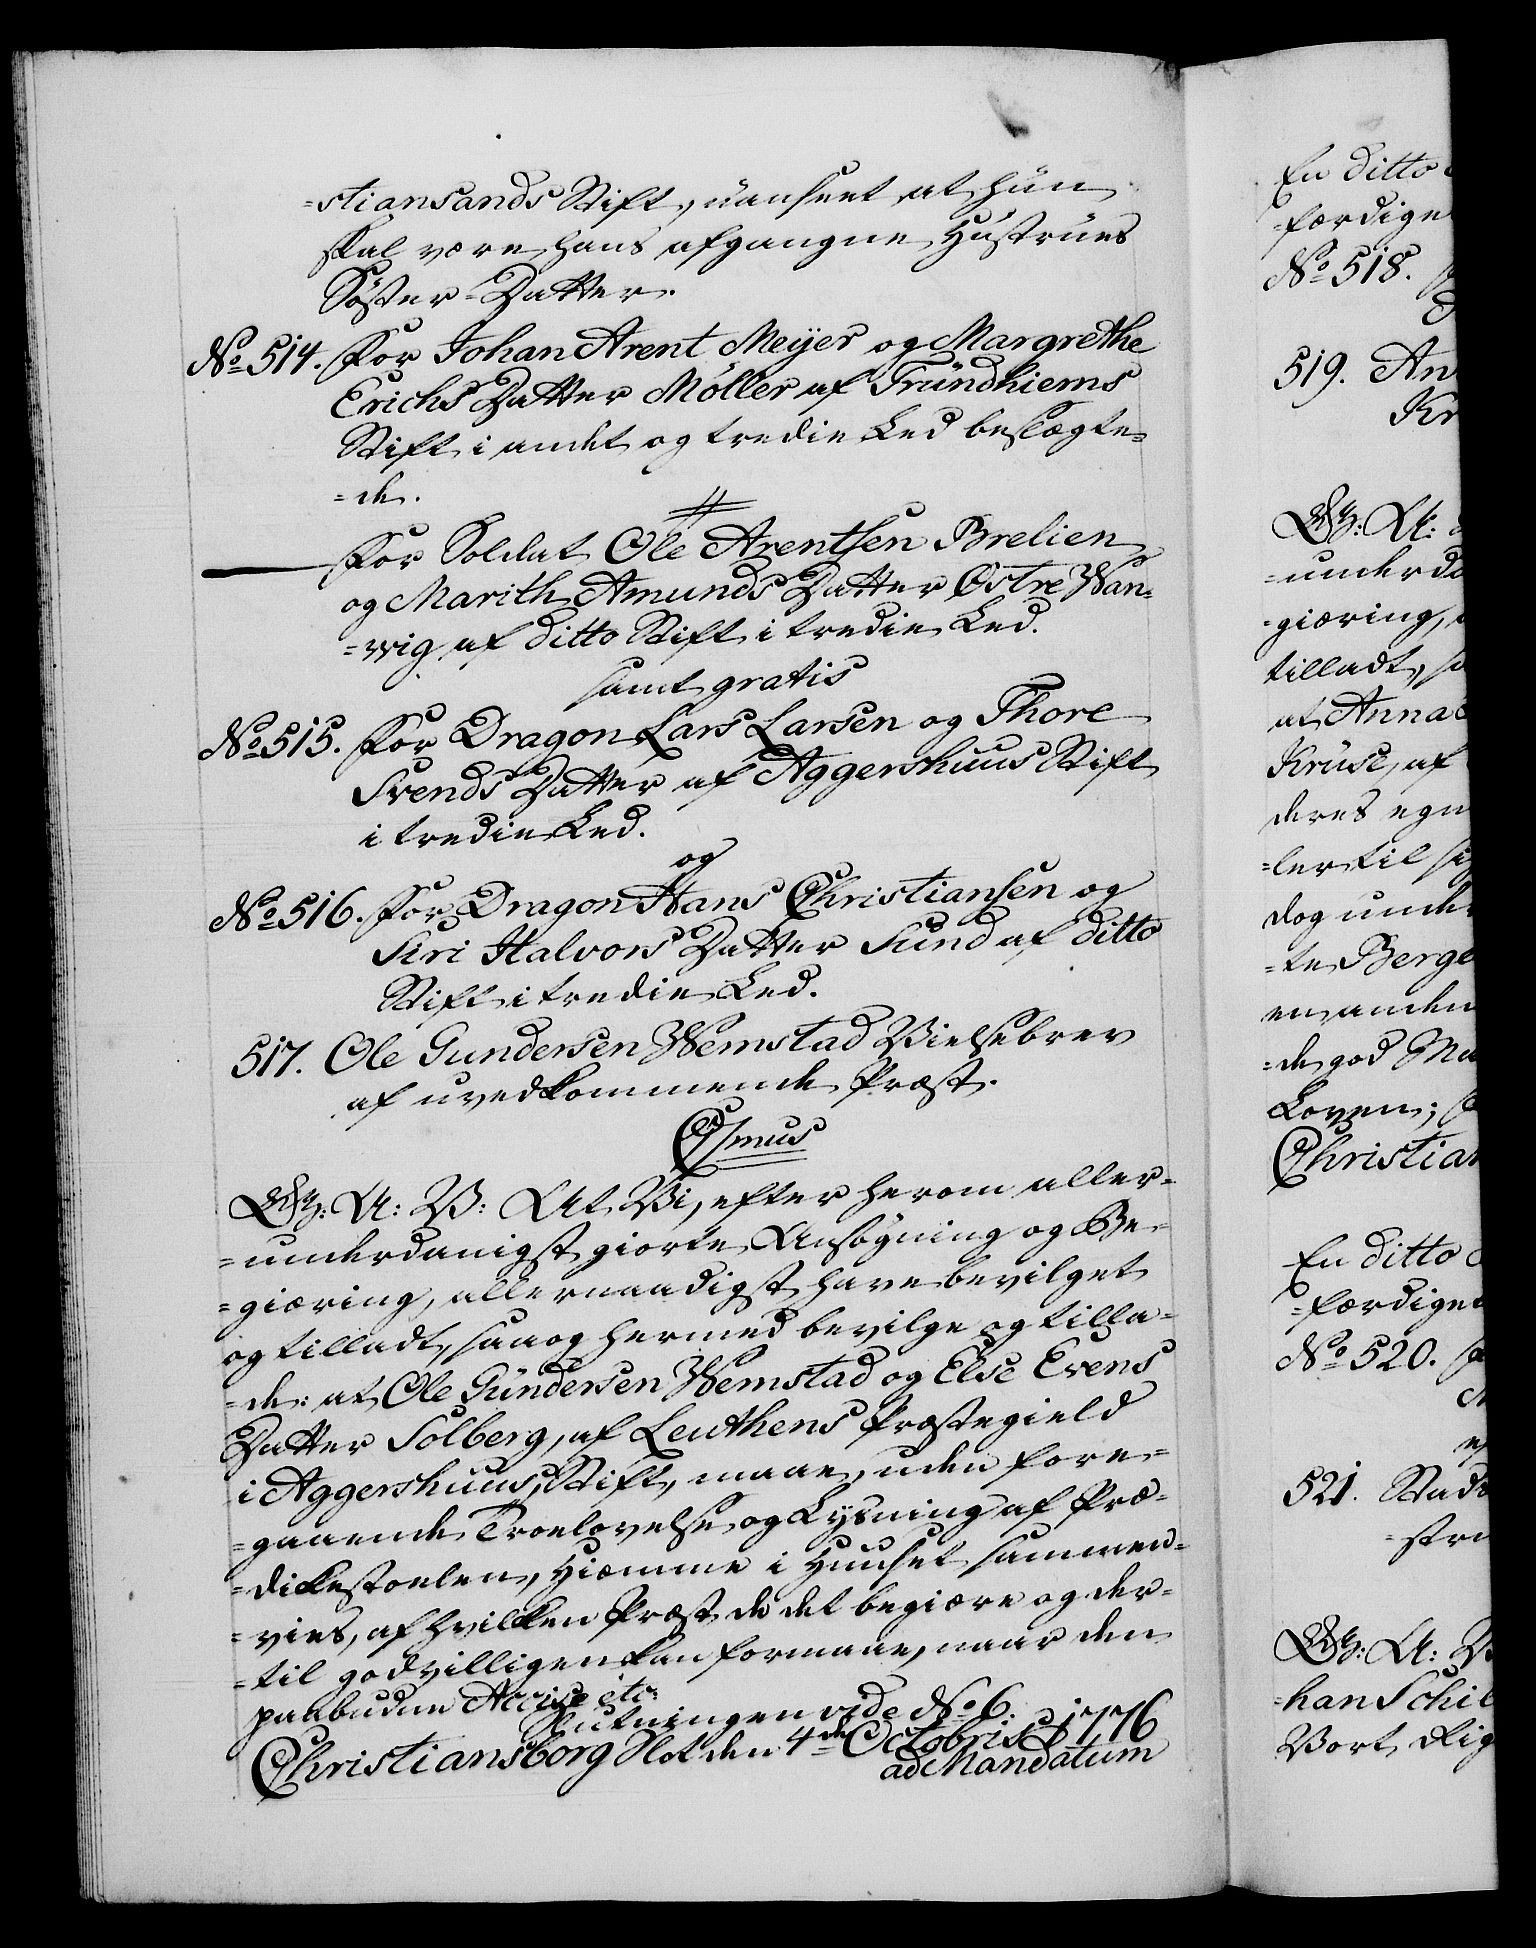 =stiansands Stift, uanseet at hun
skal være hans afgangne Hustrues
Søster-Datter.
No 514. For Johan Arent Meÿer og Margrethe
Erichs Datter Møller af Trundhiems
Stift i andet og tredie Led beslægte=
=de.
For Soldat Ole Arentsen Brelien
og Marith Amunds Datter Østre Wan=
=wig af ditto Stift i tredie Led.
samt gratis
No 515. For Dragon Lars Larsen og Thore
Svends Datter af Aggershuus Stift
i tredie Led.
og
No 516. For Dragon Hans Christiansen og
Siri Halvors Datter Sund af ditto
Stift i tredie Led.
517. Ole Gundersen Wemstad Vielsebrev
af uvedkommende Præst.
Osmus
G: A: V: At Vi, efter herom aller=
=underdanigst giorte Ansøgning og Be=
=giæring, allernaadigst have bevilget
og tilladt, saa og hermed bevilge og tilla=
=de: at Ole Gundersen Wemstad og Else Evens
Datter Solberg, af Leuthens Præstegield
i Aggershuus Stift, maae, uden fore=
=gaaende Troelovelse og Lysning af Præ=
=dikestoelen, hiemme i Huuset sammen=
=vies, af hvilken Præst de det begiære og der=
=til godvilligen kan formaae, naar den
paabudne Accise etc:
Slutningen vide No 6.
Christiansborg Slot den 4de Octobris 1776
ad Mandatum
En ditto
=færdige
No 518.
519. An
Kr
G: A:
=underda
=giæring,
tilladt, sa
at Anna
Kruse, af
deres egn
=ler til si
dog unde
=te Berge
en anden
=de god Ma
Loven; s
Christian
En ditto
=færdiget
No 520.
521. Stads
=stru
G: A: V
=han Schil
Vort Rig